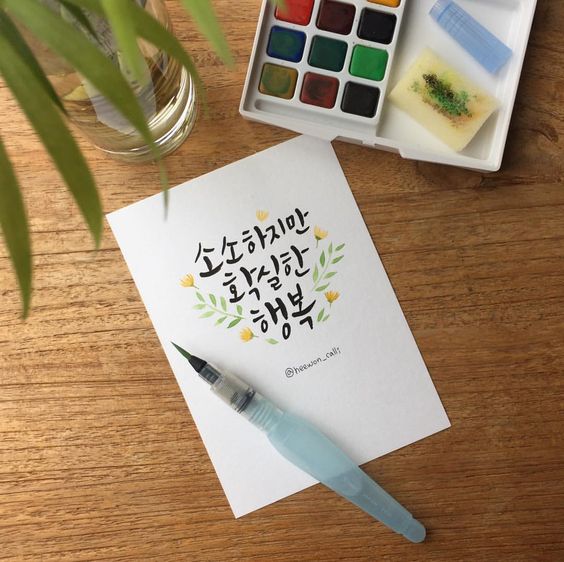 소소하지만
확실한
행복
@heewon_calli